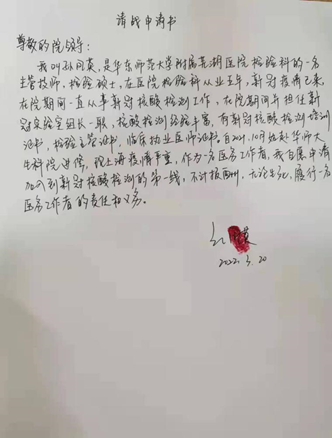 请战申请书
尊敬的院领导：
我叫孙同英，是华东师范大学附属芜湖医院检验科的一名
主管技师，检验硕士，在医院检验科从业五年，新冠疫情已来，
在院期间一直从事新冠核酸检测工作，在院期间并担任新
冠实验室组长一职，核酸检测经验丰富，有新冠核酸检测培训
证书，检验主管证书，临床执业医师证书。自2021.10月始赴华师大
生科院进修，现上海疫情严重，作为一名医务工作者，我自愿申请
加入到新冠核酸检测的第一线，不计报酬，无论生死，履行一名
医务工作者的责任和义务。
英
2022.3.20